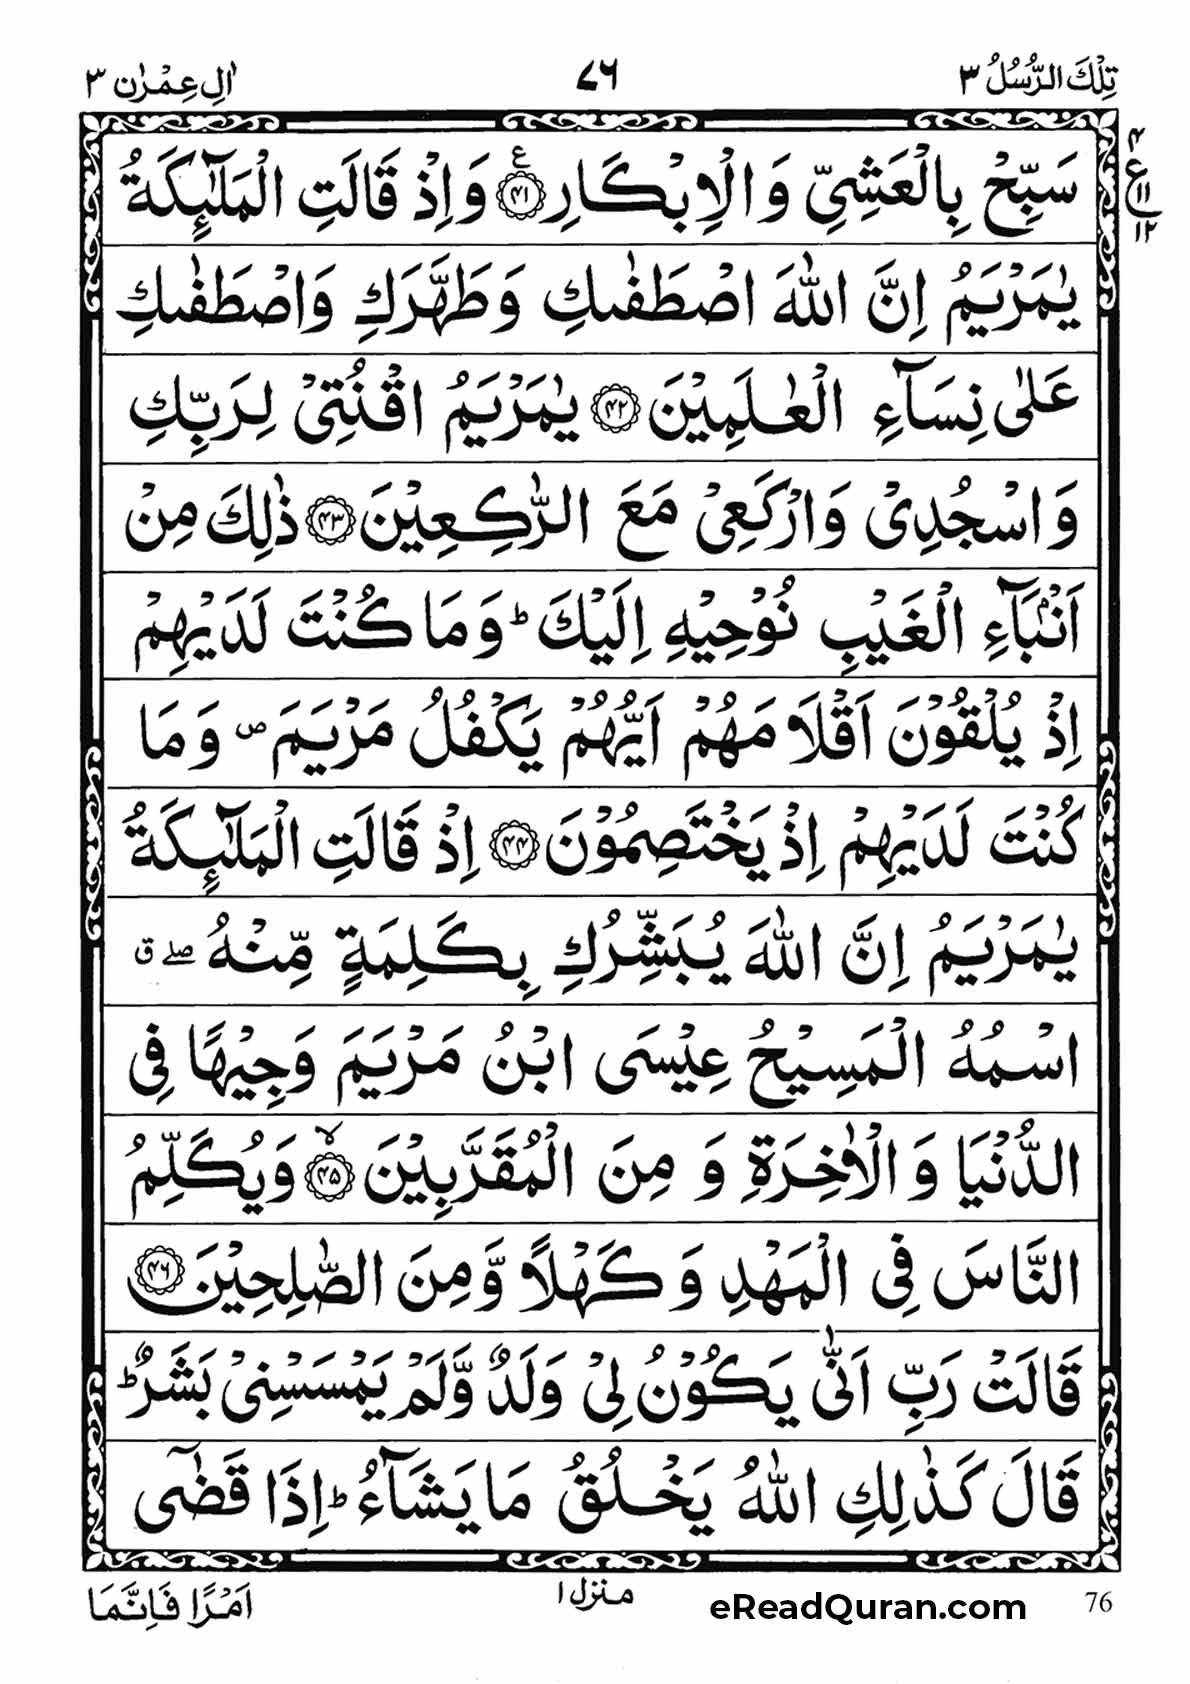 تِلْكَ الرُّسُلُ ٣
٧٦
اٰلِ عِمْرٰن ٣
٤
ع
١١
١٢
سَبِّحْ بِالْعَشِيِّ وَالْاِبْكَارِ ﴿٤١﴾ ع وَاِذْ قَالَتِ الْمَلٰٓئِكَةُ
يٰمَرْيَمُ اِنَّ اللّٰهَ اصْطَفٰىكِ وَطَهَّرَكِ وَاصْطَفٰىكِ
عَلٰى نِسَآءِ الْعٰلَمِيْنَ ﴿٤٢﴾ يٰمَرْيَمُ اقْنُتِيْ لِرَبِّكِ
وَاسْجُدِيْ وَارْكَعِيْ مَعَ الرّٰكِعِيْنَ ﴿٤٣﴾ ذٰلِكَ مِنْ
اَنْۢبَآءِ الْغَيْبِ نُوْحِيْهِ اِلَيْكَ ؕ وَمَا كُنْتَ لَدَيْهِمْ
اِذْ يُلْقُوْنَ اَقْلَامَهُمْ اَيُّهُمْ يَكْفُلُ مَرْيَمَ ۪ وَمَا
كُنْتَ لَدَيْهِمْ اِذْ يَخْتَصِمُوْنَ ﴿٤٤﴾ اِذْ قَالَتِ الْمَلٰٓئِكَةُ
يٰمَرْيَمُ اِنَّ اللّٰهَ يُبَشِّرُكِ بِكَلِمَةٍ مِّنْهُ ۖ ق
اسْمُهُ الْمَسِيْحُ عِيْسَى ابْنُ مَرْيَمَ وَجِيْهًا فِى
الدُّنْيَا وَالْاٰخِرَةِ وَمِنَ الْمُقَرَّبِيْنَ ﴿٤٥﴾ ۙ وَيُكَلِّمُ
النَّاسَ فِى الْمَهْدِ وَكَهْلًا وَّمِنَ الصّٰلِحِيْنَ ﴿٤٦﴾
قَالَتْ رَبِّ اَنّٰى يَكُوْنُ لِيْ وَلَدٌ وَّلَمْ يَمْسَسْنِيْ بَشَرٌ ؕ
قَالَ كَذٰلِكِ اللّٰهُ يَخْلُقُ مَا يَشَآءُ ؕ اِذَا قَضٰٓى
اَمْرًا فَاِنَّمَا
منزل ١
eReadQuran.com
76